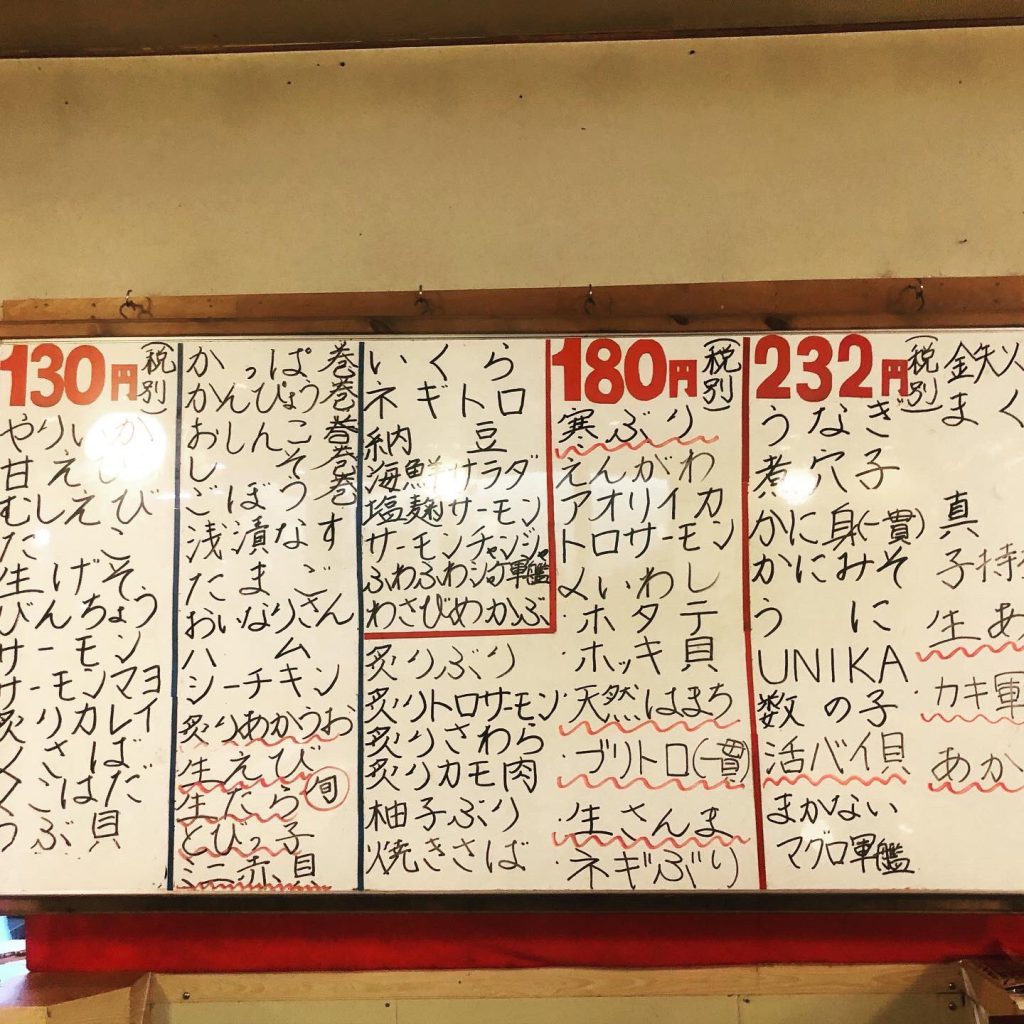 130円(税別)
やりいか
甘えび
むしえび
たこ
生げそ
びんちょう
サーモン
サーモンマヨ
炙りカレイ
〆さば
〆こはだ
つぶ貝
かっぱ巻
かんぴょう巻
おしんこ巻
しそ巻
ごぼう巻
浅漬なす
たまご
おいなりさん
ハム
シーチキン
炙りあかうお
生えび
生だら 旬
とびっ子
ミニ赤貝
いくら
ネギトロ
納豆
海鮮サラダ
塩麹サーモン
サーモンチャンジャ
軍艦
わさびめかぶ
炙りぶり
炙りトロサーモン
炙りさわら
炙りカモ肉
柚子ぶり
焼きさば
180円(税別)
寒ぶり
えんがわ
アオリイカ
トロサーモン
〆いわし
・ホタテ
・ホッキ貝
・天然はまち
・ブリトロ(一貫)
・生さんま
・ネギぶり
232円(税別)
うなぎ
煮穴子
かに身(一貫)
かにみそ
うに
UNIKA
数の子
活バイ貝
まかない
マグロ軍艦
鉄火
まぐ
真
子持
生あ
カキ軍
あか